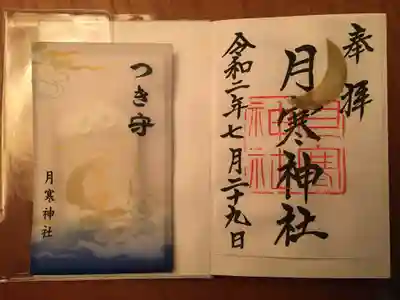 奉拝
月寒神社
月寒神社
令和二年七月二十九日
つき守
月寒神社